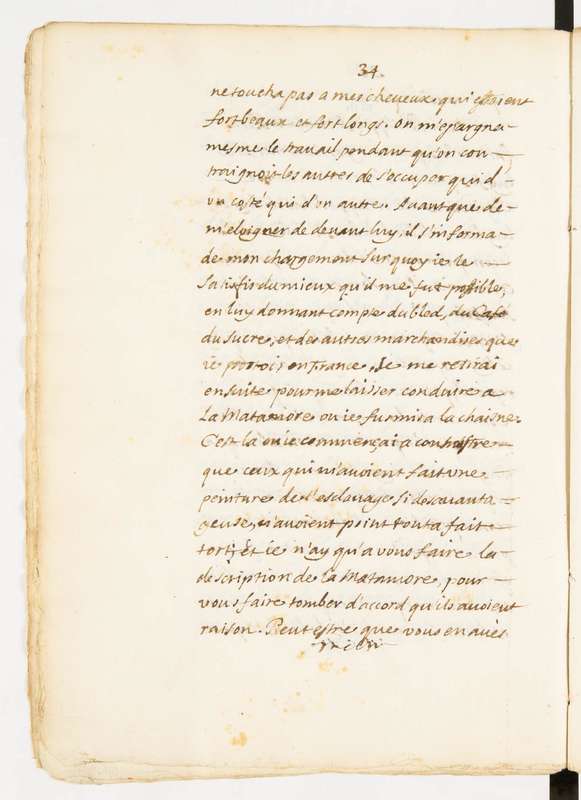 34.
ne toucha pas a mes cheveux qui estoient
fort beaux et fort longs. On m'epargna
mesme le travail pendant qu'on con -
traignoit les autres de s'occuper qui d'
un costé qui d'un autre. Avant que de
m'eloigner de devant luy, il s'informa
de mon chargement sur quoy ie le
satisfis du mieux qu'il me fut possible,
en luy donnant compte du bled, du Café
du sucre, et des autres marchandises que
ie portois en France, Je me retirai
ensuite pour me laisser conduire a
La Matamore ou ie fus mis a la chaisne.
C'est la ou ie commençai a connoistre
que ceux qui m'avoient fait une
peinture de l'esclavage si desavanta =
geuse, n'avoient point tout a fait
tort, Et ie n'ay qu'a vous faire la
description de la Matamore, pour
vous faire tomber d'accord qu'ils avoient
raison. Peut estre que vous en avés